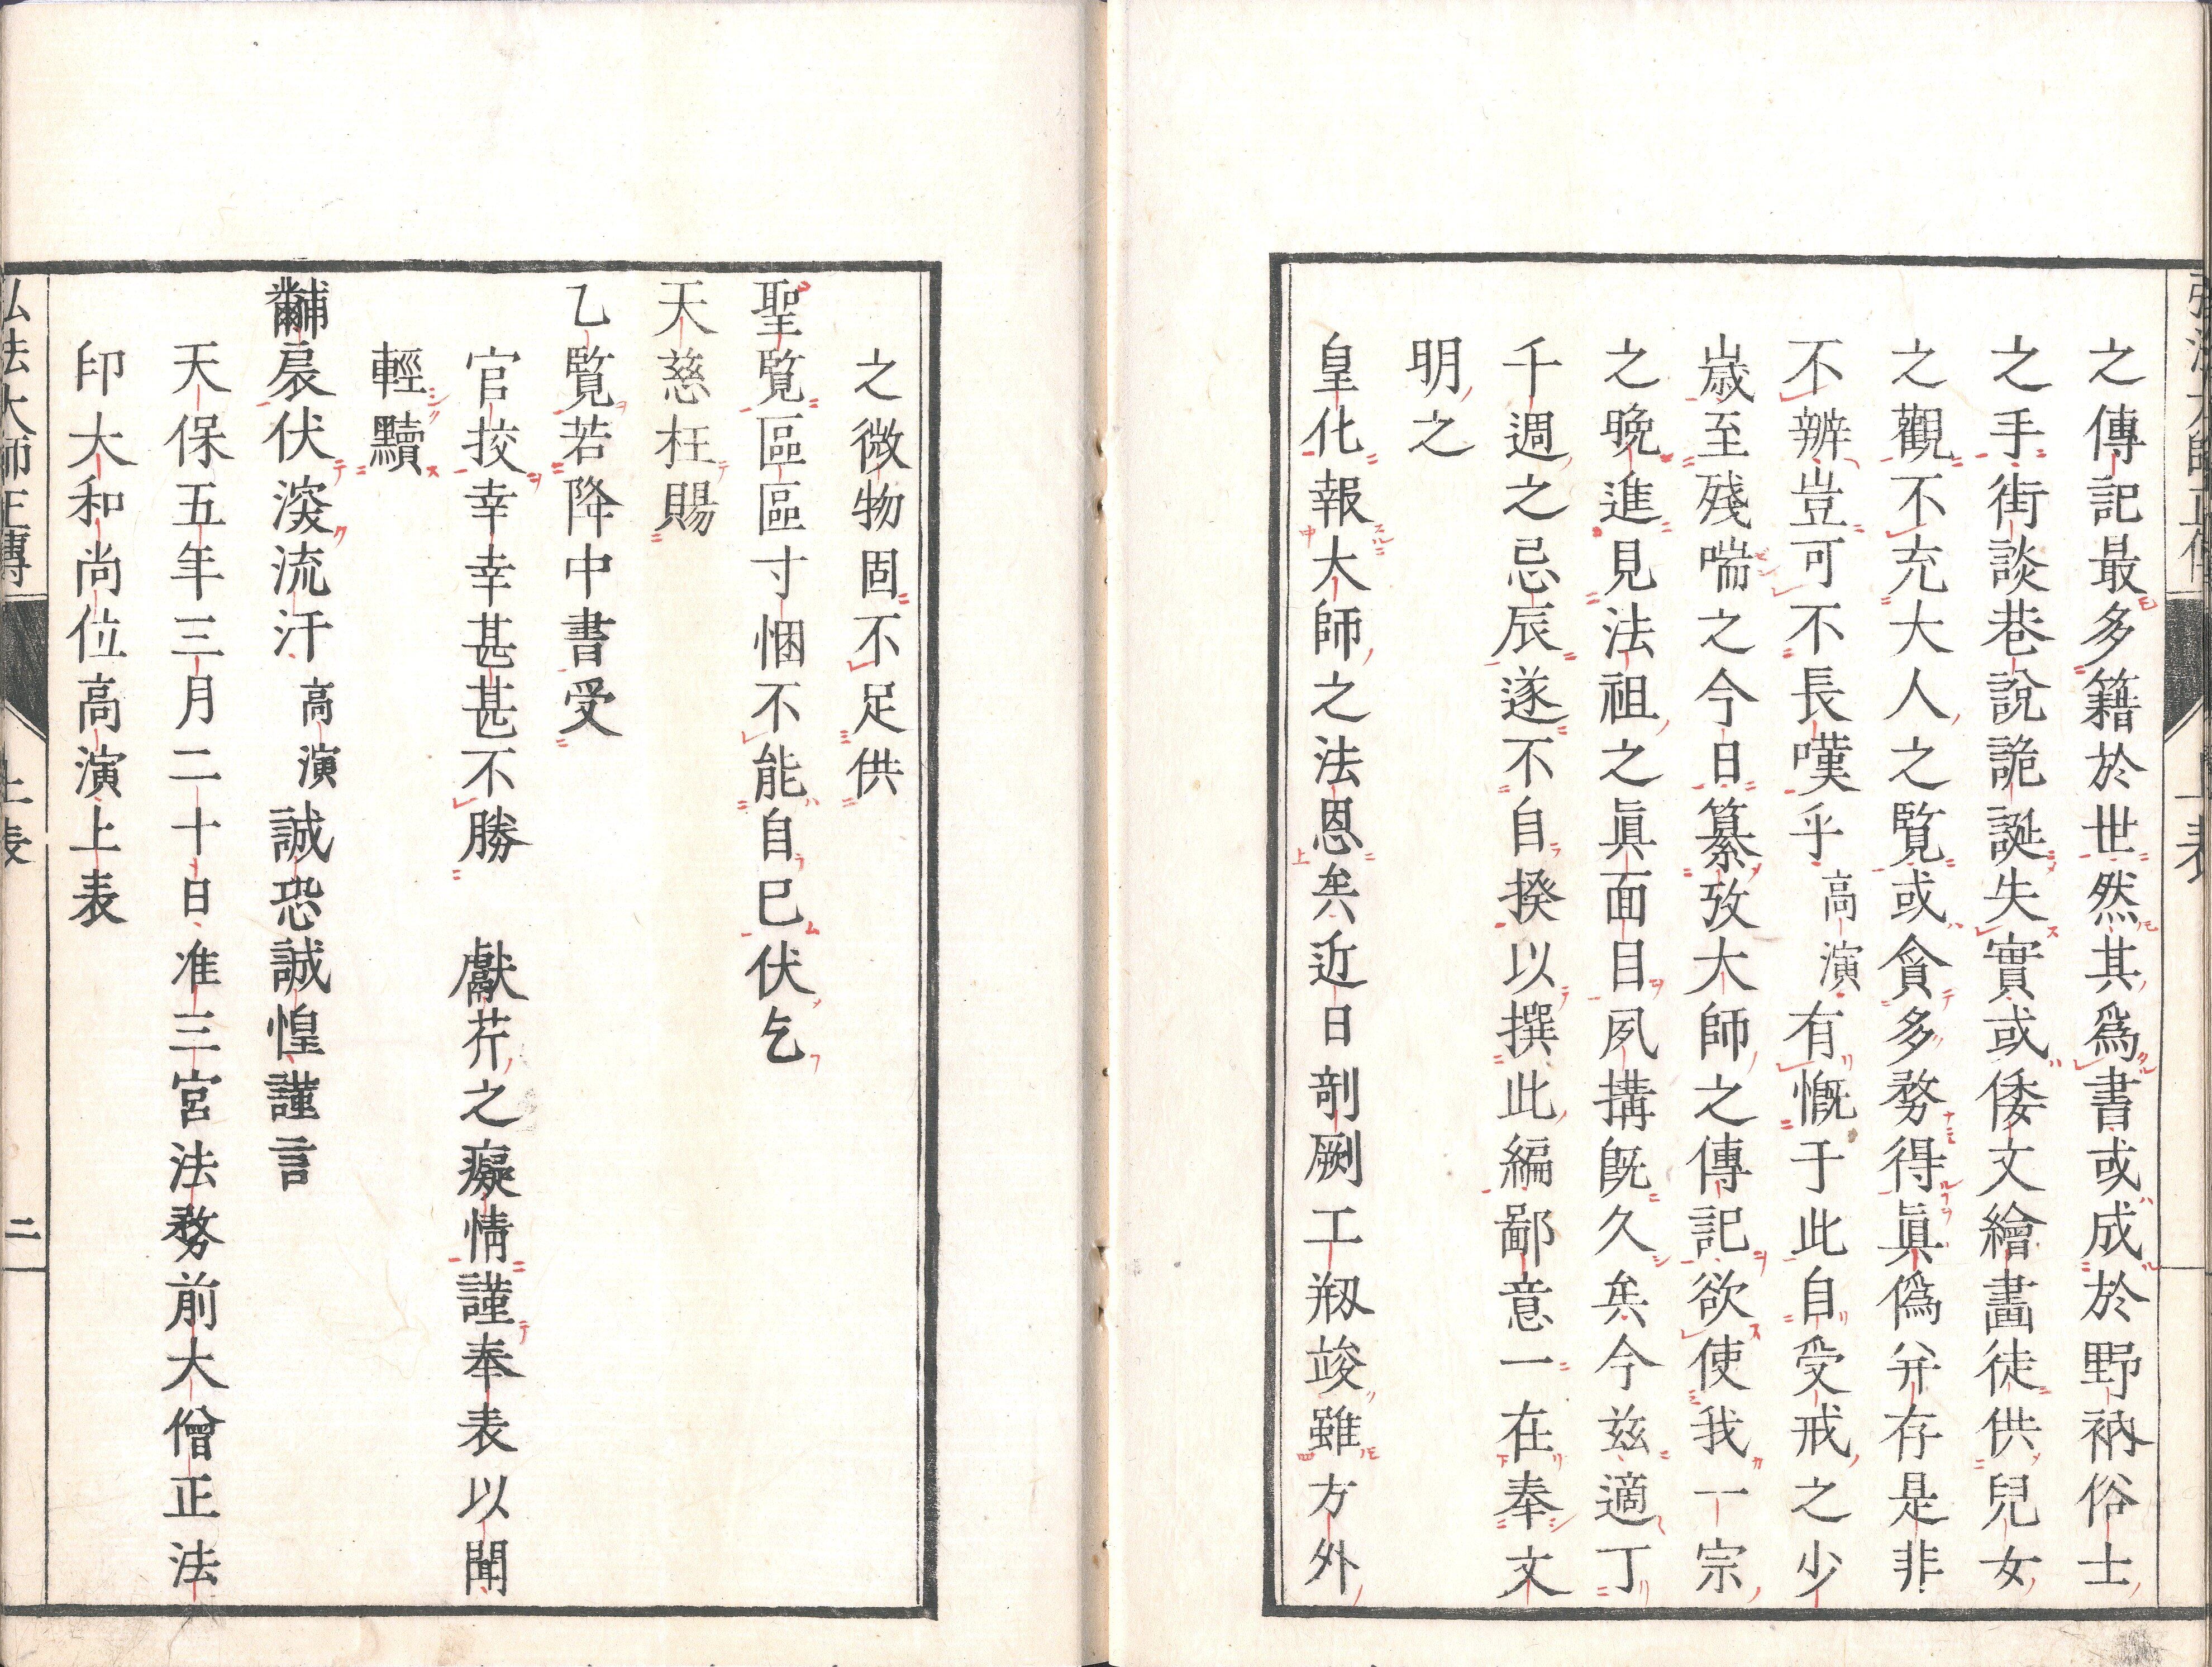 之傳記最多籍於世然其爲書或成於野衲俗士
之手街談巷說詭誕失實或倭文繪畵徒供兒女
之觀不充大人之覧或貪多務得眞僞幷存是非
不辨豈可不長嘆乎高演有慨于此自受戒之少
歳至殘喘之今日纂攷大師之傳記欲使我一宗
之晩進見法祖之眞面目夙搆旣久矣今玆適丁
千週之忌辰遂不自揆以撰此編鄙意一在奉文
明之
皇化報大師之法恩矣近日剞劂工剏竣雖方外
之微物固不足供
聖覧區區寸悃不能自已伏乞
天慈枉賜
乙覧若降中書受
官挍幸幸甚甚不勝 獻芹之癡情謹奉表以聞
輕黷
黼扆伏深流汗高演誠恐誠惶謹言
天保五年三月二十日准三宮法務前大僧正法
印大和尚位高演上表
弘法大師正傳 上表 二